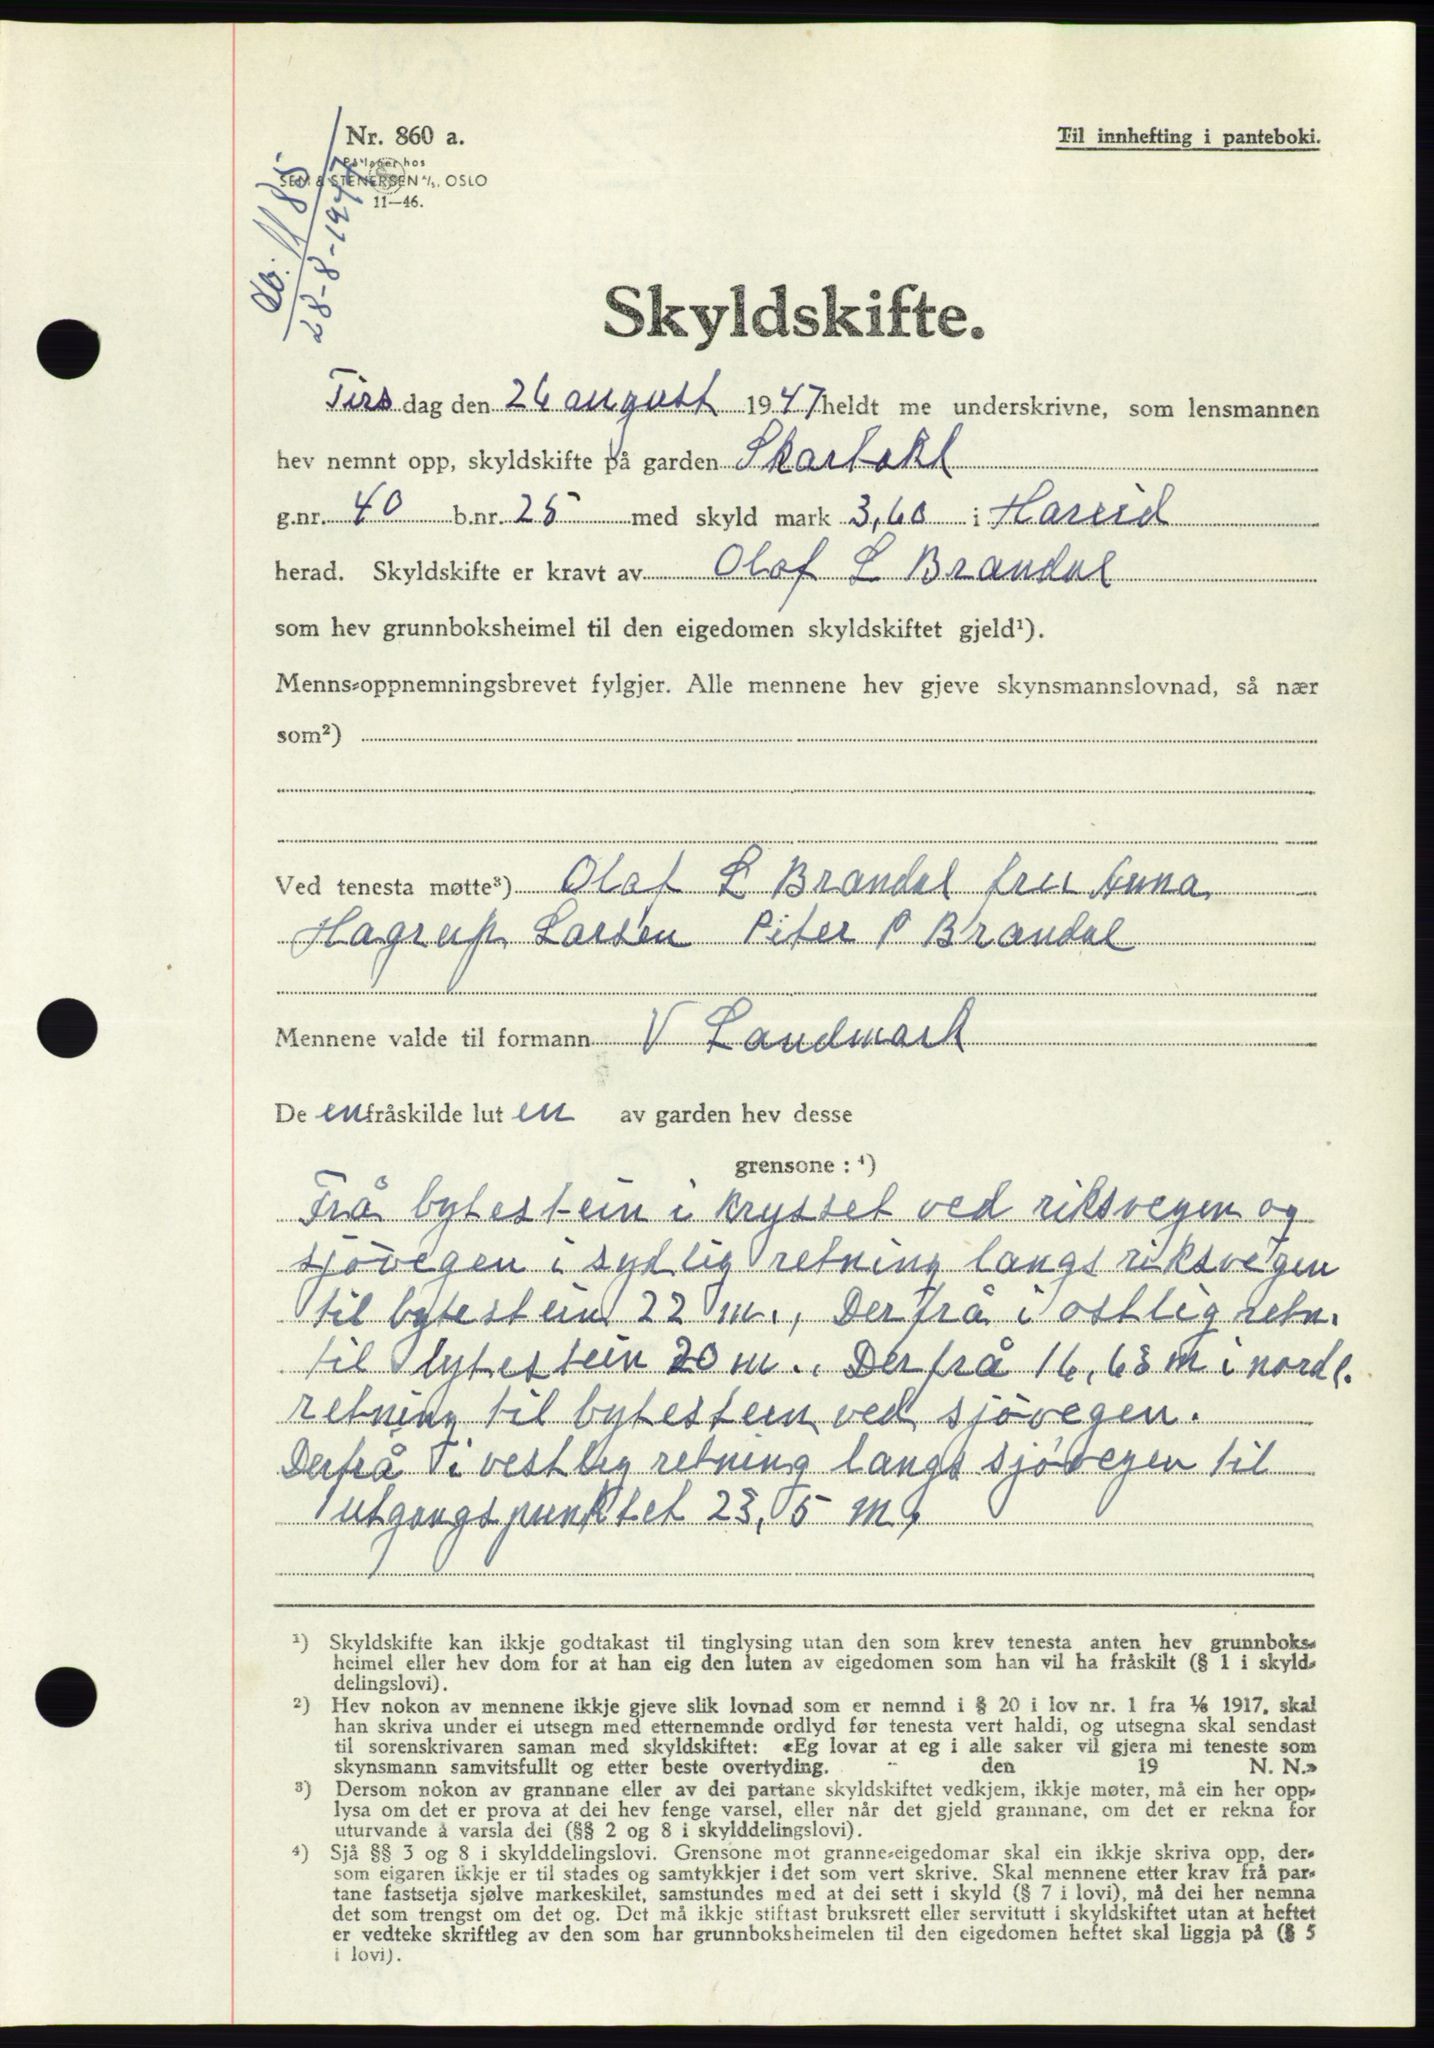 Nr. 860 a.
Til innhefting i panteboki.
På lager hos
SEM & STENERSEN A/S, OSLO
11—46.
Db. 1185
28-8-1947
Skyldskifte.
Tirsdag den 26 august 1947 heldt me underskrivne, som lensmannen
hev nemnt opp, skyldskifte på garden
g.nr. 40 b.nr. 25 med skyld mark 3,60 i Hareid
herad. Skyldskifte er kravt av Olaf L Brandal
som hev grunnboksheimel til den eigedomen skyldskiftet gjeld¹).
Menns-oppnemningsbrevet fylgjer. Alle mennene hev gjeve skynsmannslovnad, så nær
som²)
Ved tenesta møtte³) Olaf L Brandal fru Anna
Hagrup Larsen Peter P Brandal
Mennene valde til formann V Landmark
De en fråskilde lut en av garden hev desse
grensone : ⁴)
Frå bytestein i krysset ved riksvegen og
sjøvegen i sydlig retning langs riksvegen
til bytestein 22 m., Derfrå i ostlig retn.
til bytestein 20 m.. Derfrå 16,63 m i nordl.
retning til bytestein ved sjøvegen.
Derfrå i vestlig retning langs sjøvegen til
utgangspunktet 23,5 m,
¹) Skyldskifte kan ikkje godtakast til tinglysing utan den som krev tenesta anten hev grunnboks-
heimel eller hev dom for at han eig den luten av eigedomen som han vil ha fråskilt (§ 1 i skyld-
delingslovi).
²) Hev nokon av mennene ikkje gjeve slik lovnad som er nemnd i § 20 i lov nr. 1 fra 1/8 1917, skal
han skriva under ei utsegn med etternemnde ordlyd før tenesta vert haldi, og utsegna skal sendast
til sorenskrivaren saman med skyldskiftet: «Eg lovar at eg i alle saker vil gjera mi teneste som
skynsmann samvitsfullt og etter beste overtyding. den 19 N. N.»
³) Dersom nokon av grannane eller av dei partane skyldskiftet vedkjem, ikkje møter, må ein her opp-
lysa om det er prova at dei hev fenge varsel, eller når det gjeld grannane, om det er rekna for
uturvande å varsla dei (§§ 2 og 8 i skylddelingslovi).
⁴) Sjå §§ 3 og 8 i skylddelingslovi. Grensone mot granne-eigedomar skal ein ikkje skriva opp, der-
som eigaren ikkje er til stades og samtykkjer i det som vert skrive. Skal mennene etter krav frå par-
tane fastsetja sjølve markeskilet, samstundes med at dei sett i skyld (§ 7 i lovi), må dei her nemna
det som trengst om det og. Det må ikkje stiftast bruksrett eller servitutt i skyldskiftet utan at heftet
er vedteke skriftleg av den som har grunnboksheimelen til den eigedomen heftet skal liggja på (§ 5
i lovi).